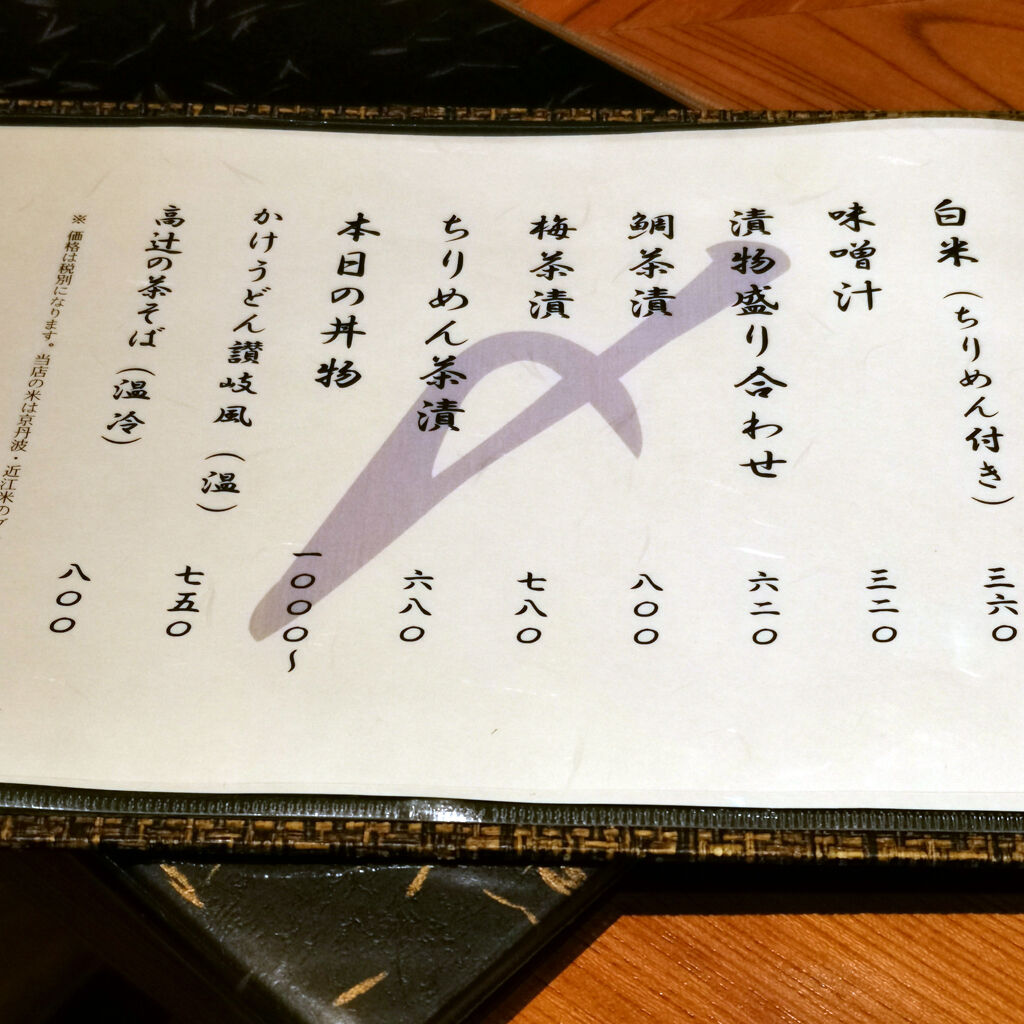 白米（ちりめん付き）
三六〇
味噌汁
三二〇
漬物盛り合わせ
六二〇
鯛茶漬
八〇〇
梅茶漬
七八〇
ちりめん茶漬
六八〇
本日の丼物
一〇〇〇〜
かけうどん讃岐風（温）
七五〇
高辻の茶そば（温冷）
八〇〇
※ 価格は税別になります。当店の米は京丹波・近江米の